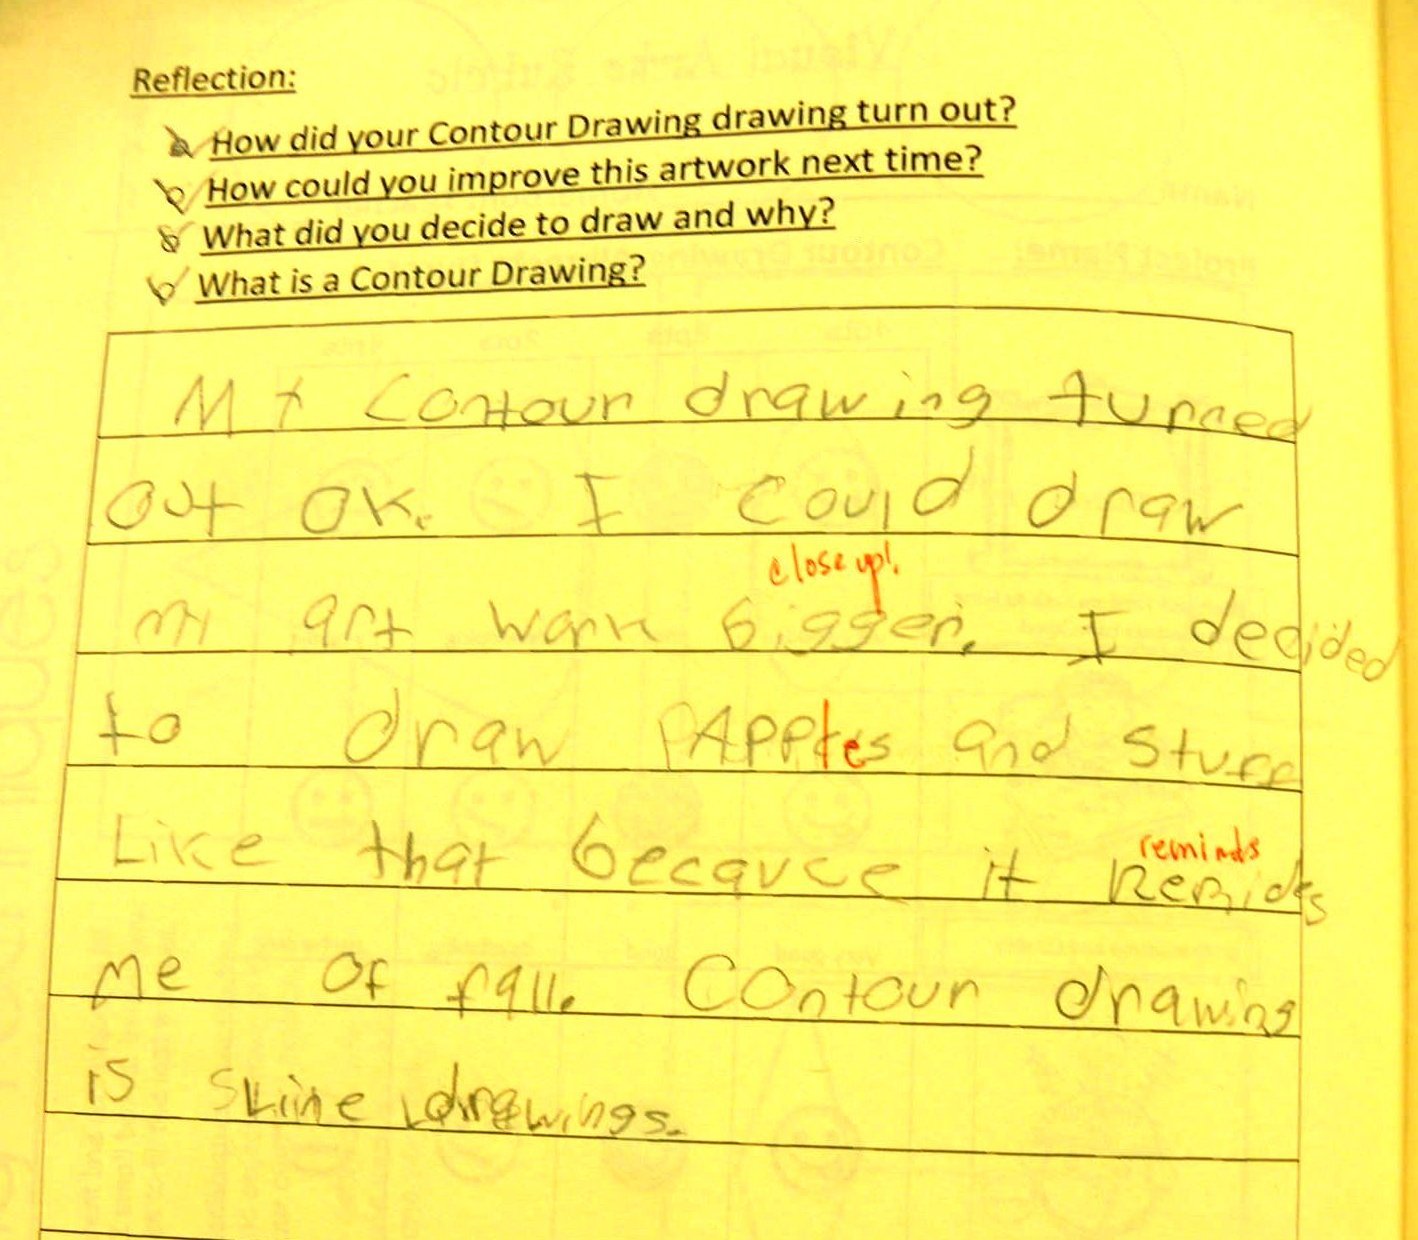 Reflection:
How did your Contour Drawing drawing turn out?
How could you improve this artwork next time?
What did you decide to draw and why?
What is a Contour Drawing?
My Contour drawing turned
out OK. I could draw
close up!
my art work bigger. I decided
to draw Apples and stuff
Like that becauce it
reminds
Remides
me of fall. Contour drawing
is line drawings.